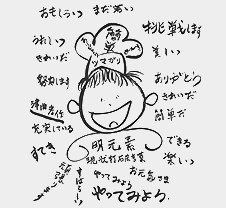 おもしろい
まだ若い
挑戦します
うれしい
ツマガリ
美しい
きれいだ
ありがとう
努力します
きれいだ
簡単だ
充実している
明元素
できる
すてき
現状打石破言葉
楽しい
すばらしい
お元気さま
やってみよう
やってみよう